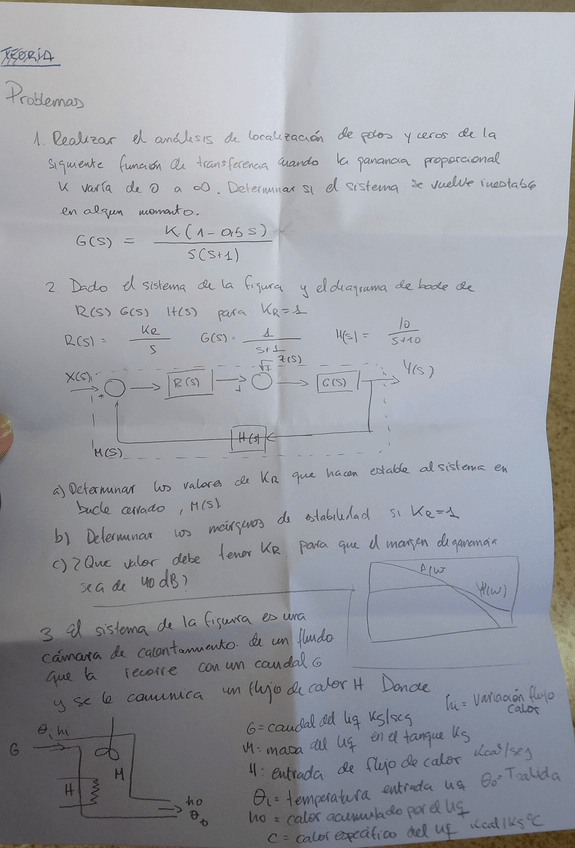 TEORIA
Problemas
1. Realizar el análisis de localización de polos y ceros de la
siguiente función de transferencia cuando la ganancia proporcional
K varía de 0 a ∞. Determinar si el sistema se vuelve inestable
en algun momento.
G(s) = K.(1-0,5s) / s(s+1)
2. Dado el sistema de la figura y el diagrama de bode de
R(s) G(s) H(s) para KR=1
R(s) = KR / s G(s) = 1 / s+1 H(s) = 10 / s+10
X(s) + R(s) Z(s) G(s) Y(s)
H(s)
M(s)
a) Determinar los valores de KR que hacen estable al sistema en
bucle cerrado, M(s)
b) Determinar los márgenes de estabilidad si KR=1
c) ? Que valor debe tener KR para que el margen de ganancia
sea de 40 dB?
A(w)
φ(w)
3. El sistema de la figura es una
cámara de calentamiento de un fluido
que la recorre con un caudal G
y se le comunica un flujo de calor H Donde
hi = variación flujo
calor
G = caudal del liq Kg/seg
M = masa del liq en el tanque Kg
H: entrada de flujo de calor Kcal/seg
θi = temperatura entrada liq θo = T salida
ho = calor acumulado por el liq
C = calor especifico del liq Kcal/Kg°C
G θi hi
H M
ho
θo